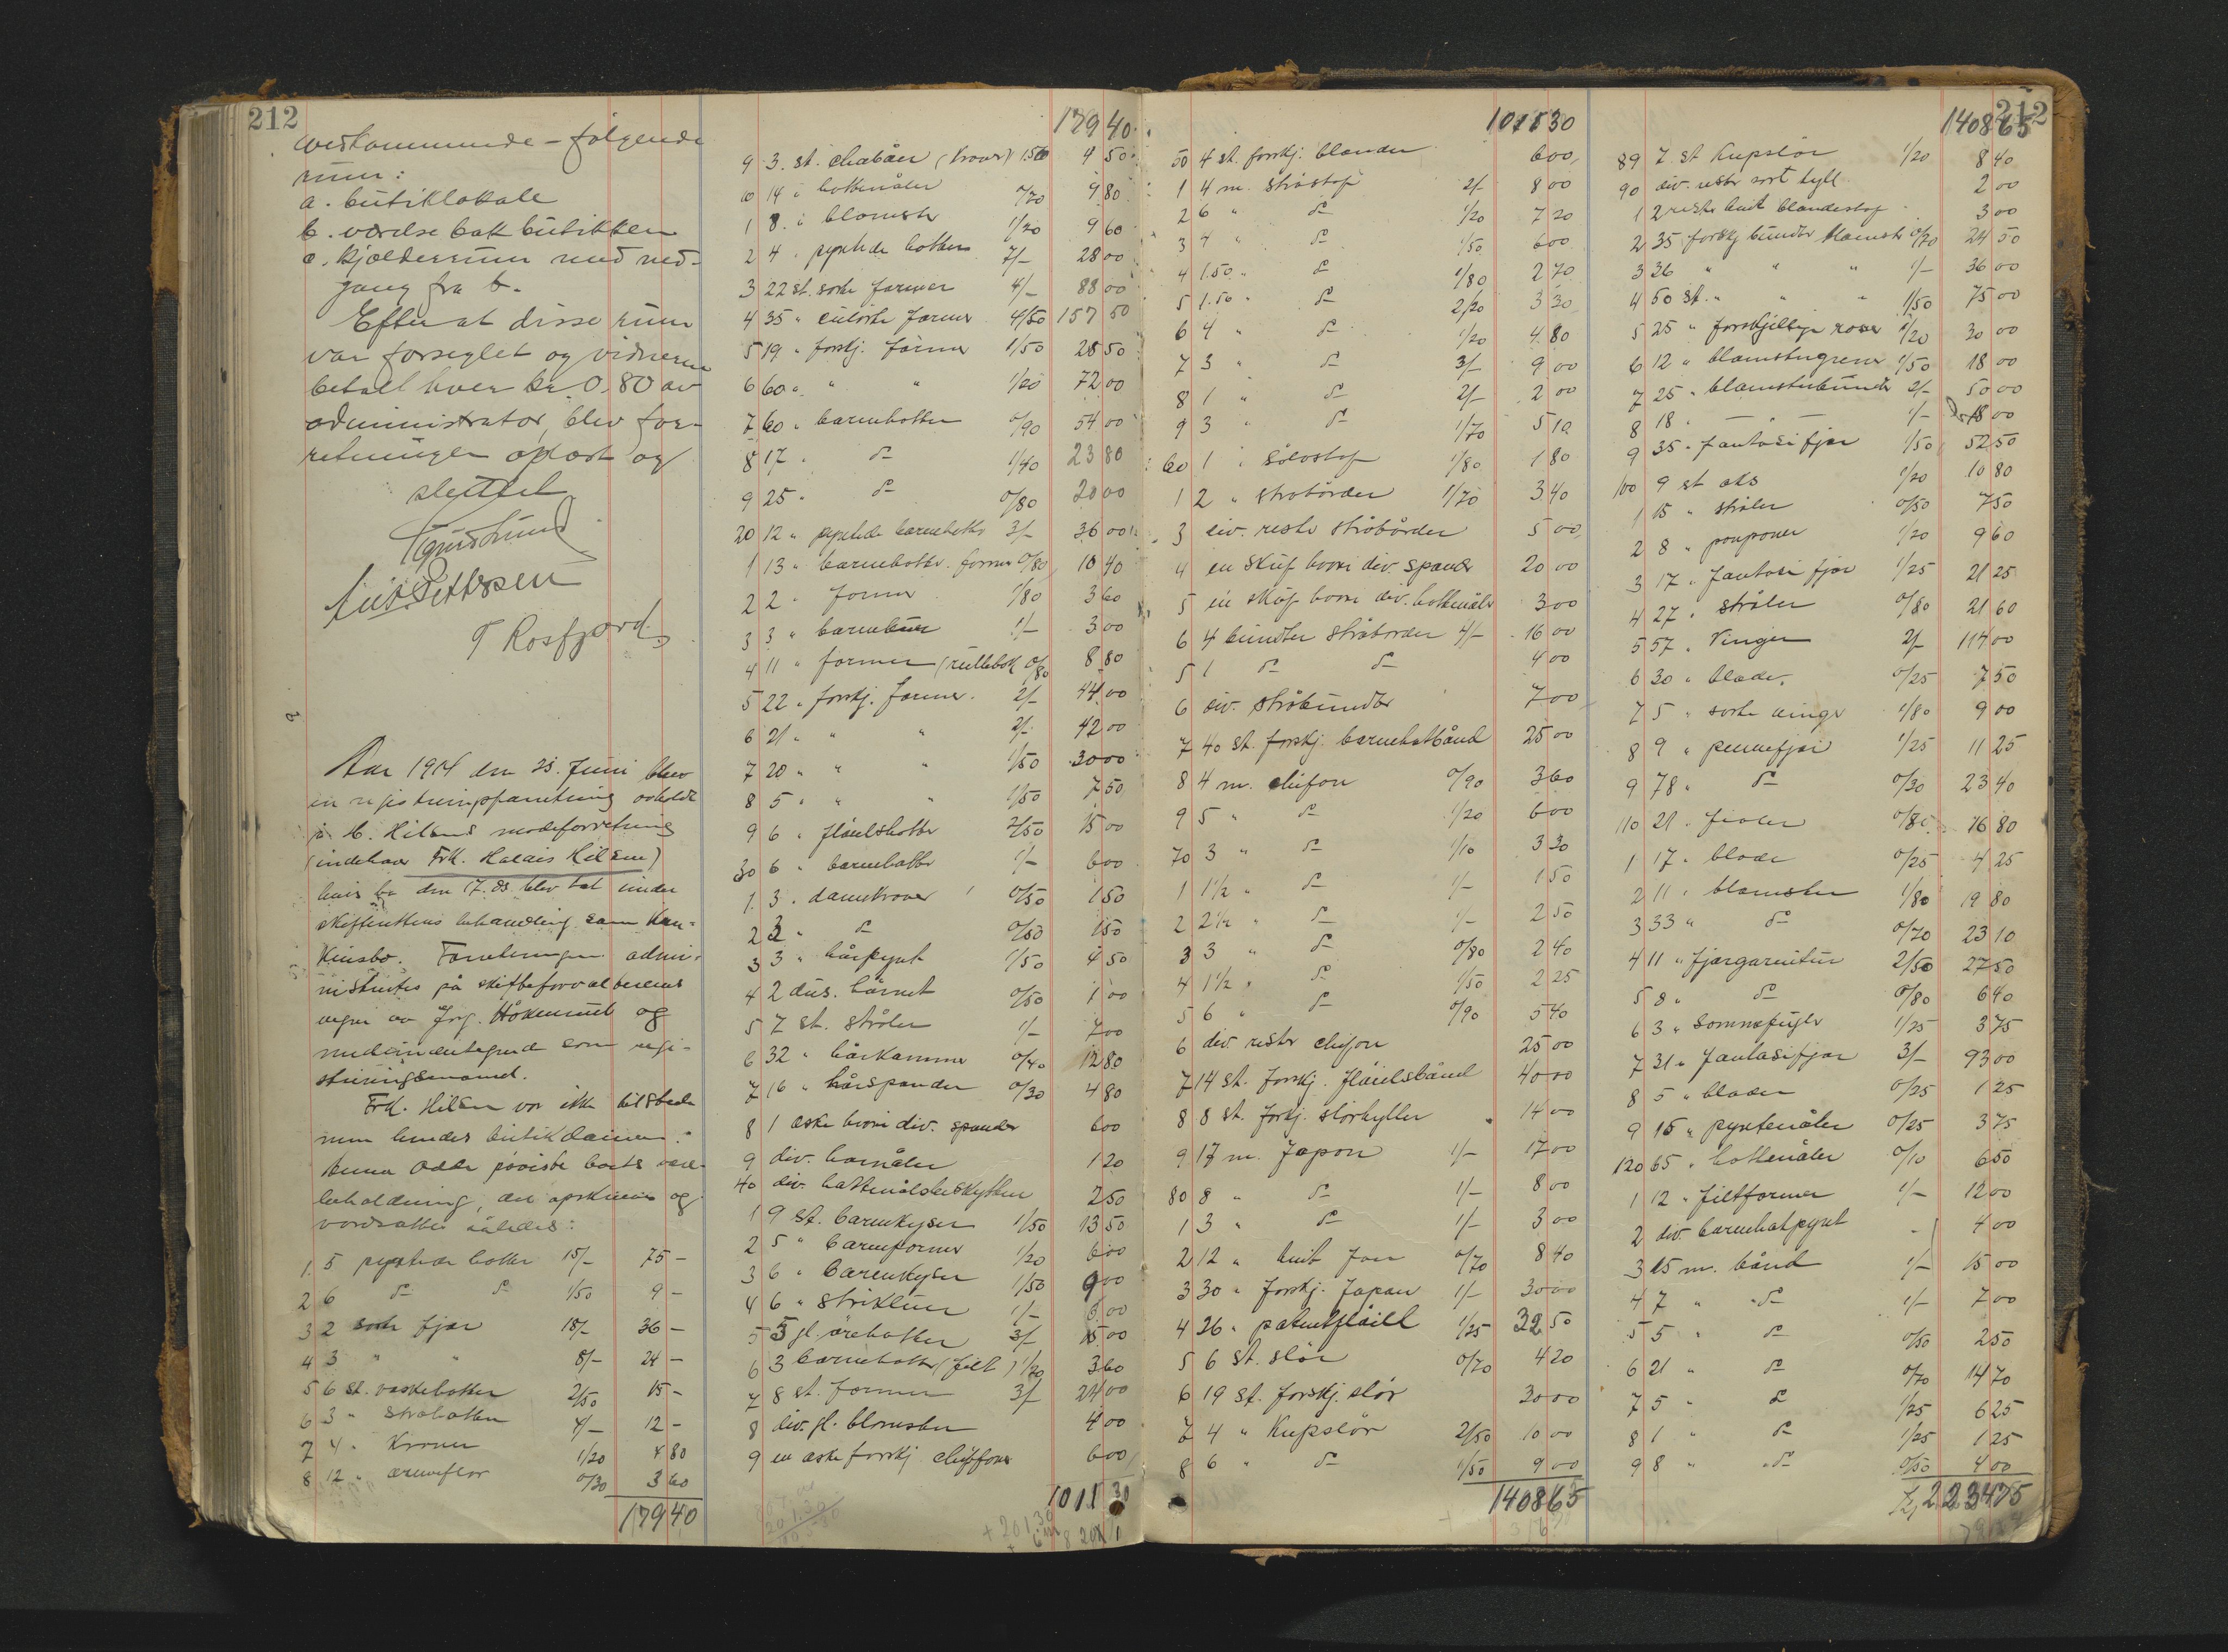 212
vedkommende – følgende
rum:
a. butiklokale
b. værelse bak butikken
c. kjælderrum med ned-
gang fra b.
Efter at disse rum
var forseglet og vidnerne
betalt hver kr. 0,80 av
administrator, blev for-
retningen oplæst og
sluttet
T Rosfjord.
Aar 1914 den 23. Juni blev
en registreringsforretning avholdt
i H. Hilsens modeforretning
(indehaver Frk. Hilsen)
hvis bo den 17. ds. blev tat under
skifterettens behandling som kon-
kursbo. Forretningen admi-
nistrertes på skifteforvalterens
vegne av og
medundertegnede som regi-
streringsmænd.
Frk. Hilsen var ikke tilstede
men hendes butikdame.
Denne påviste boets vare-
beholdning, der opskreves og
således:
1. 5 pyntede hatter 15/- 75 -
2 6 do do 1/50 9 -
3 2 sorte fjær 18/- 36 -
4 3 " " 8/- 24 -
5 6 st. vaskehatter 2/50 15 -
6 3 " stråhatter 4/- 12 -
7 4 " Kroner 1/20 4 80
8 12 " 0/30 3 60
179 40
179 40
9 3. st. (kroner) 1 50 4 50
10 14 " hattenåler 0/70 9 80
1 8 " blomster 1/20 9 60
2 4 " pyntede hatter 7/- 28 00
3 22 st. sorte former 4/- 88 00
4 35 " culørte former 4/50 157 50
5 19 " forskj. former 1/50 28 50
6 60 " " " 1/20 72 00
7 60 " barnehatter 0/90 54 00
8 17 " do 1/40 23 80
9 25 " do 0/80 20 00
20 12 " pyntede barnehatter 3/- 36 00
1 13 " barnehatte. former 0/80 10 40
2 2 " former 1/80 3 60
3 3 " 1/- 3 00
4 11 " former (rullebok 0/80 8 80
5 22 " forskj. former. 2/- 44 00
6 21 " " " 2/- 42 00
7 20 " " " 1/50 30 00
8 5 " " " 1/50 7 50
9 6 " fløielshatter 2/50 15 00
30 6 " barnehatter 1/- 6 00
1 3 " damekroner 0/50 1 50
2 3 " do 0/50 1 50
3 3 " hårpynt 1/50 4 50
4 2 dus. hårnet 0/50 1 00
5 7 st. stråler 1/- 7 00
6 32 " hårkammer 0/40 12 80
7 16 " hårspænder 0/30 4 80
8 1 æske hvori div. spænder 6 00
9 div. hårnåler 1 20
40 div. hattenålsbeskyttere 2 50
1 9 st. barnekyser 1/50 13 50
2 5 " barneformer 1/20 6 00
3 6 " barnekyser 1/50 9 00
4 6 " strikluer 1/- 6 00
5 5 gl. ørehatter 3/- 15 00
6 3 barnehatter (filt) 1/20 3 60
7 8 st. former 3/- 24 00
8 div. gl. blomster 4 00
9 en æske forskj. chiffoner 6 00
1011 30
1011 30
50 4 st. forskj. blonder 6 00
1 4 m. stråstof 2/- 8 00
2 6 " do 1/20 7 20
3 4 " do 1/50 6 00
4 1.50 " do 1/80 2 70
5 1.50 " do 2/20 3 30
6 4 " do 1/20 4 80
7 3 " do 3/- 9 00
8 1 " do 2/- 2 00
9 3 " do 1/70 5 10
60 1 " sølvstof 1/80 1 80
1 2 " stråbårder 1/70 3 40
3 div. rester stråbårder 5 00
4 en skuf hvori div. spænder 20 00
5 en skuf hvori div. hattenåler 3 00
6 4 bundter stråbårder 4/- 16 00
5 1 do do 4 00
6 div. stråbundter 7 00
7 40 st. forskj. barnehatbånd 25 00
8 4 m. chifon 0/90 3 60
9 5 " do 1/20 6 00
70 3 " do 1/10 3 30
1 1½ " do 1/- 1 50
2 2½ " do 1/- 2 50
3 3 " do 0/80 2 40
4 1½ " do 1/50 2 25
5 6 " do 0/90 5 40
6 div. rester chifon 25 00
7 14 st. forskj. fløielsbånd 40 00
8 8 st. forskj. slørtyller 14 00
9 17 m. Japon 1/- 17 00
80 8 " do 1/- 8 00
1 3 " do 1/- 3 00
2 12 " hvit 0/70 8 40
3 30 " forskj. Japan 1/- 30 00
4 26 " patentfløiel 1/25 32 50
5 6 st. slør 0/70 4 20
6 19 st. forskj. slør 30 00
7 4 " Kupslør 2/50 10 00
8 6 " do 1/50 9 00
1408 65
212
1408 65
89 7 st Kupslør 1/20 8 40
90 div. rester sort tyll 2 00
1 2 rester hvit blondestof 3 00
2 35 forskj bundter blomster 0/70 24 50
3 36 " " " 1/- 36 00
4 50 st. " " " 1/50 75 00
5 25 " forskjellige roser 1/20 30 00
6 12 " blomstergrener 1/50 18 00
7 25 " blomsterbundter 2/- 50 00
8 18 " — 1/- 18 00
9 35 " fantasifjær 1/50 52 50
100 9 st aks 1/20 10 80
1 15 " stråler 0/50 7 50
2 8 " pomponer 1/20 9 60
3 17 " fantasi fjær 1/25 21 25
4 27 " stråler 0/80 21 60
5 57 " Vinger 2/- 114 00
6 30 " blade. 0/25 7 50
7 5 " sorte vinger 1/80 9 00
8 9 " pennefjær 1/25 11 25
9 78 " do 0/30 23 40
110 21 " fioler 0/80 16 80
1 17 " blade 0/25 4 25
2 11 " blomster 1/80 19 80
3 33 " do 0/70 23 10
4 11 " fjærgarnitur 2/50 27 50
5 8 " do 0/80 6 40
6 3 " sommerfugler 1/25 3 75
7 31 " fantasifjær 3/- 93 00
8 5 " blader 0/25 1 25
9 15 " pyntenåler 0/25 3 75
120 65 " hattenåler 0/10 6 50
1 12 " filtformer 1/- 12 00
2 div. barnehatpynt 4 00
3 15 m. bånd 1/- 15 00
4 7 " do 1/- 7 00
5 5 " do 0/50 2 50
6 21 " do 0/70 14 70
7 5 " do 1/25 6 25
8 1 " do 1/25 1 25
9 8 " do 0/50 4 00
2234 75